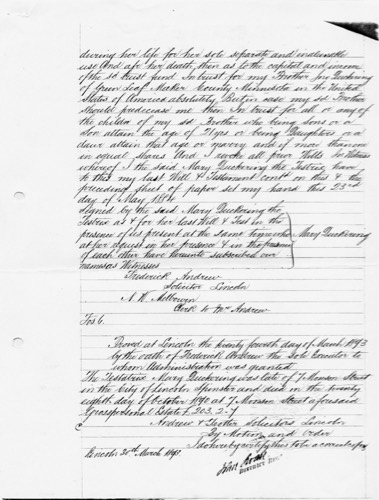 during her life for her sole separate and inalienable
use And after her death then as to the capital and income
of the sd trust fund In trust for my Brother Jno Duckering
of Green Leaf Maker County Minnesota in the United
States of America absolutely But in case my sd Brother
should predecease me then In trust for all or any of
the childn of my sd Brother who being sons or a
son attain the age of 21 yrs or being Daughters or a
daur attain that age or marry and if more than one
in equal shares And I revoke all prior Wills In Witness
whereof I the said Mary Duckering the Testatrix have
to this my last Will & Testament contd on this & the
preceding sheet of paper set my hand this 23rd
day of May 1884
Signed by the said Mary Duckering the
Testrix as & for her last Will & Test in the
presence of us present at the same time who Mary Duckering
at her request in her presence & in the presence
of each other have hereunto subscribed our
names as Witnesses
Frederick Andrew
Solicitor Lincoln
N. W.
Clerk to Mr Andrew
Fos 6.
Proved at Lincoln the twenty fourth day of March 1893
by the oath of Frederick Andrew the Sole Executor to
whom Administration was granted
The Testatrix Mary Duckering was late of 7 Monson Street
in the City of Lincoln Spinster and died on the twenty
eighth day of October 1892 at 7 Monson Street aforesaid
Gross personal Estate £ 203. 2. 7
Andrew & Trotter Solicitors Lincoln
By Motion and Order
I do hereby certify this to be a correct copy
Lincoln 30th March 1893.
John
District